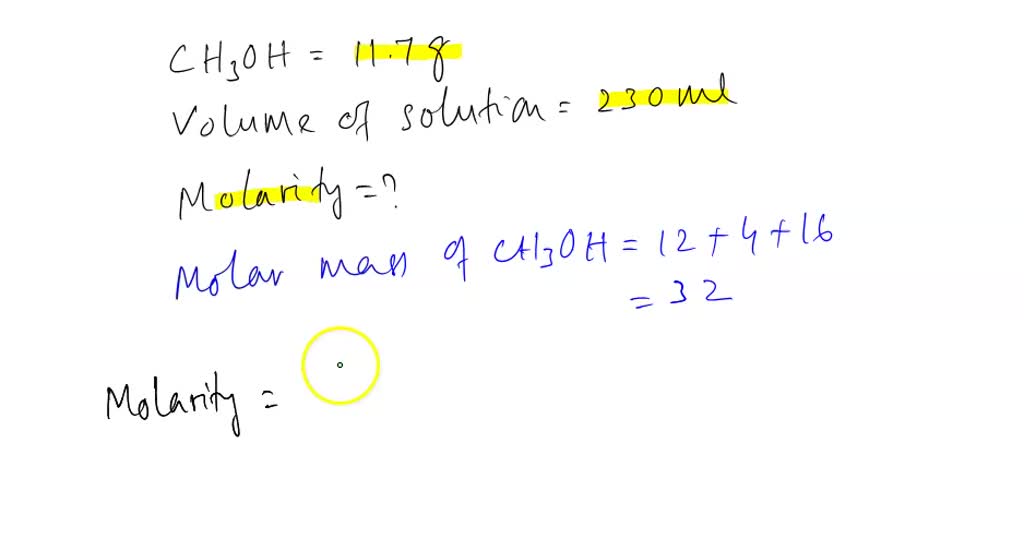 CH3OH = 11.7g
Volume of solution = 230ml
Molarity = ?
Molar mass of CH3OH = 12 + 4 + 16
= 32
Molarity =